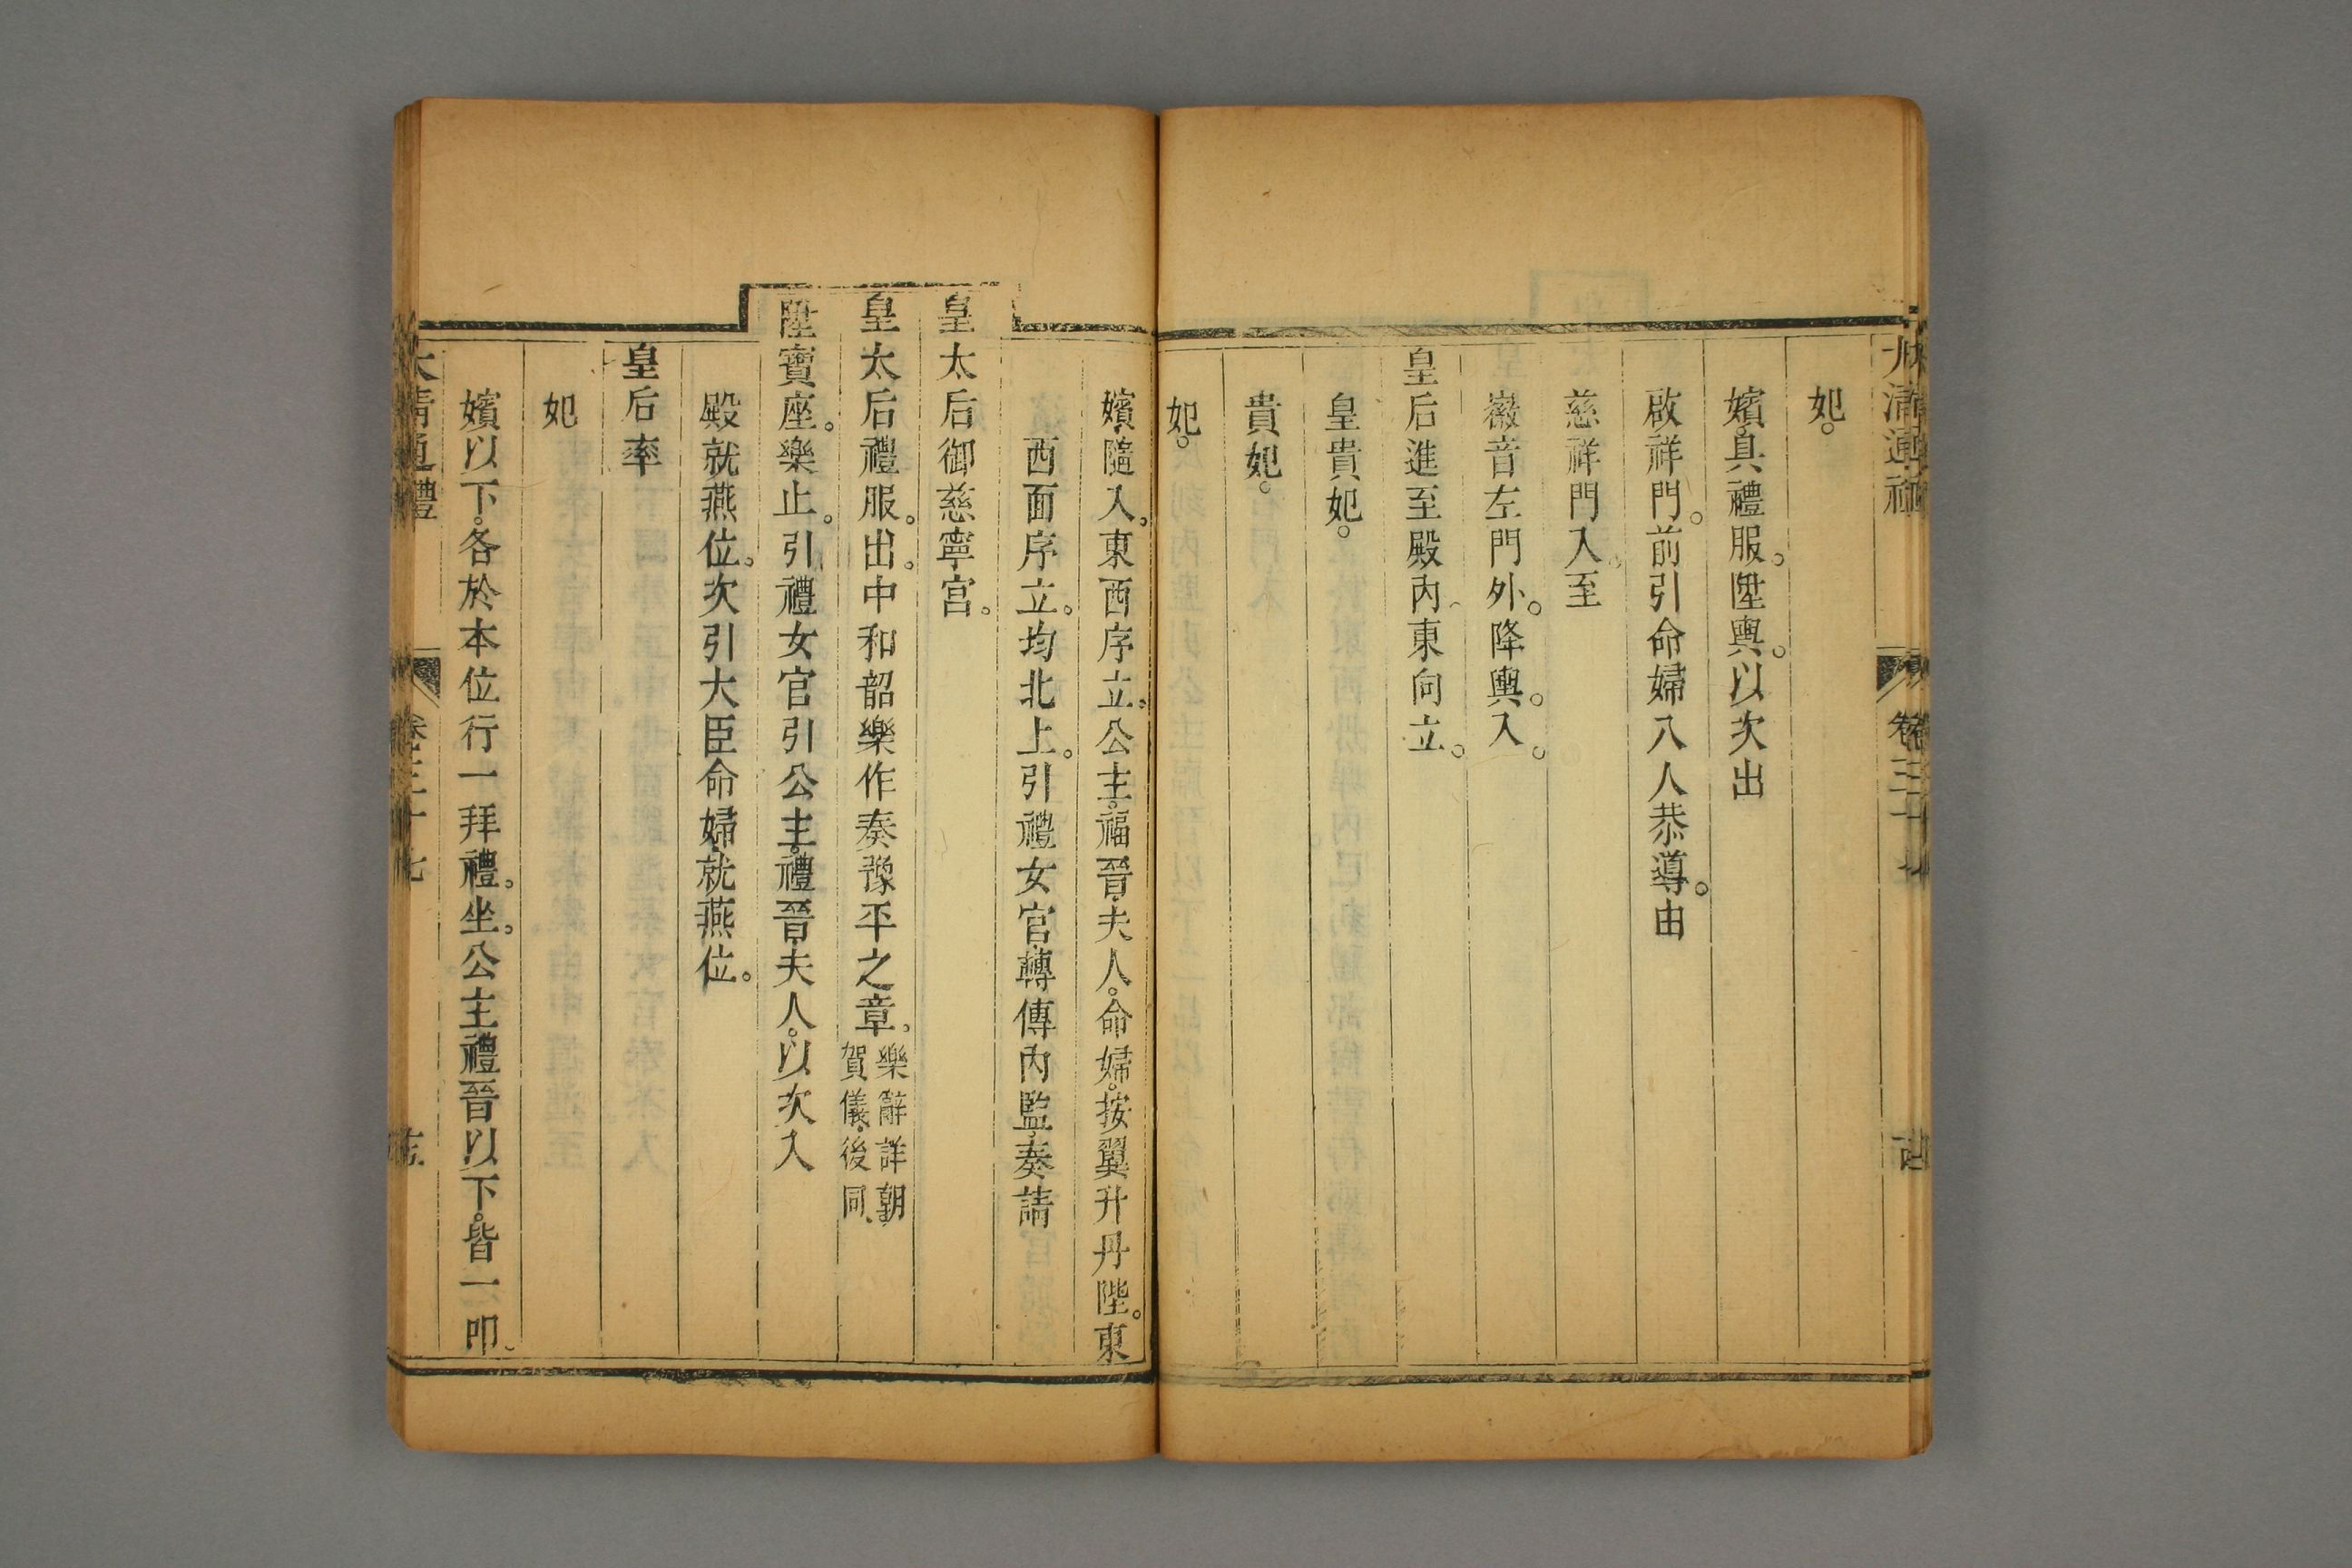 大清通禮 卷三十七
妃。
嬪。具禮服。陞輿。以次出
啟祥門。前引命婦八人恭導。由
慈祥門入。至
徽音左門外。降輿。入。
皇后進至殿內東向立。
皇貴妃。
貴妃。
妃。
嬪。隨入。東西序立。公主。福晉。夫人。命婦。按翼升丹陛。東
西面序立。均北上。引禮女官。轉傳內監。奏請
皇太后御慈寧宮。
皇太后禮服。出。中和韶樂作奏豫平之章。樂辭詳朝
賀儀。後同。
陞寶座。樂止。引禮女官引公主。禮晉。夫人。以次入
殿就燕位。次引大臣命婦。就燕位。
皇后率
妃
嬪以下。各於本位行一拜禮。坐。公主禮晉以下。皆一叩。
大清通禮 卷三十七